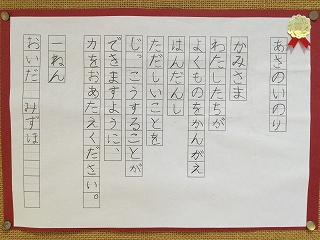 あさのいのり
かみさま
わたしたちが
よくものをかんがえ
はんだんし
ただしいことを
じっこうすることが
できますように、
力をおあたえください。
一ねん
おいだ みずほ